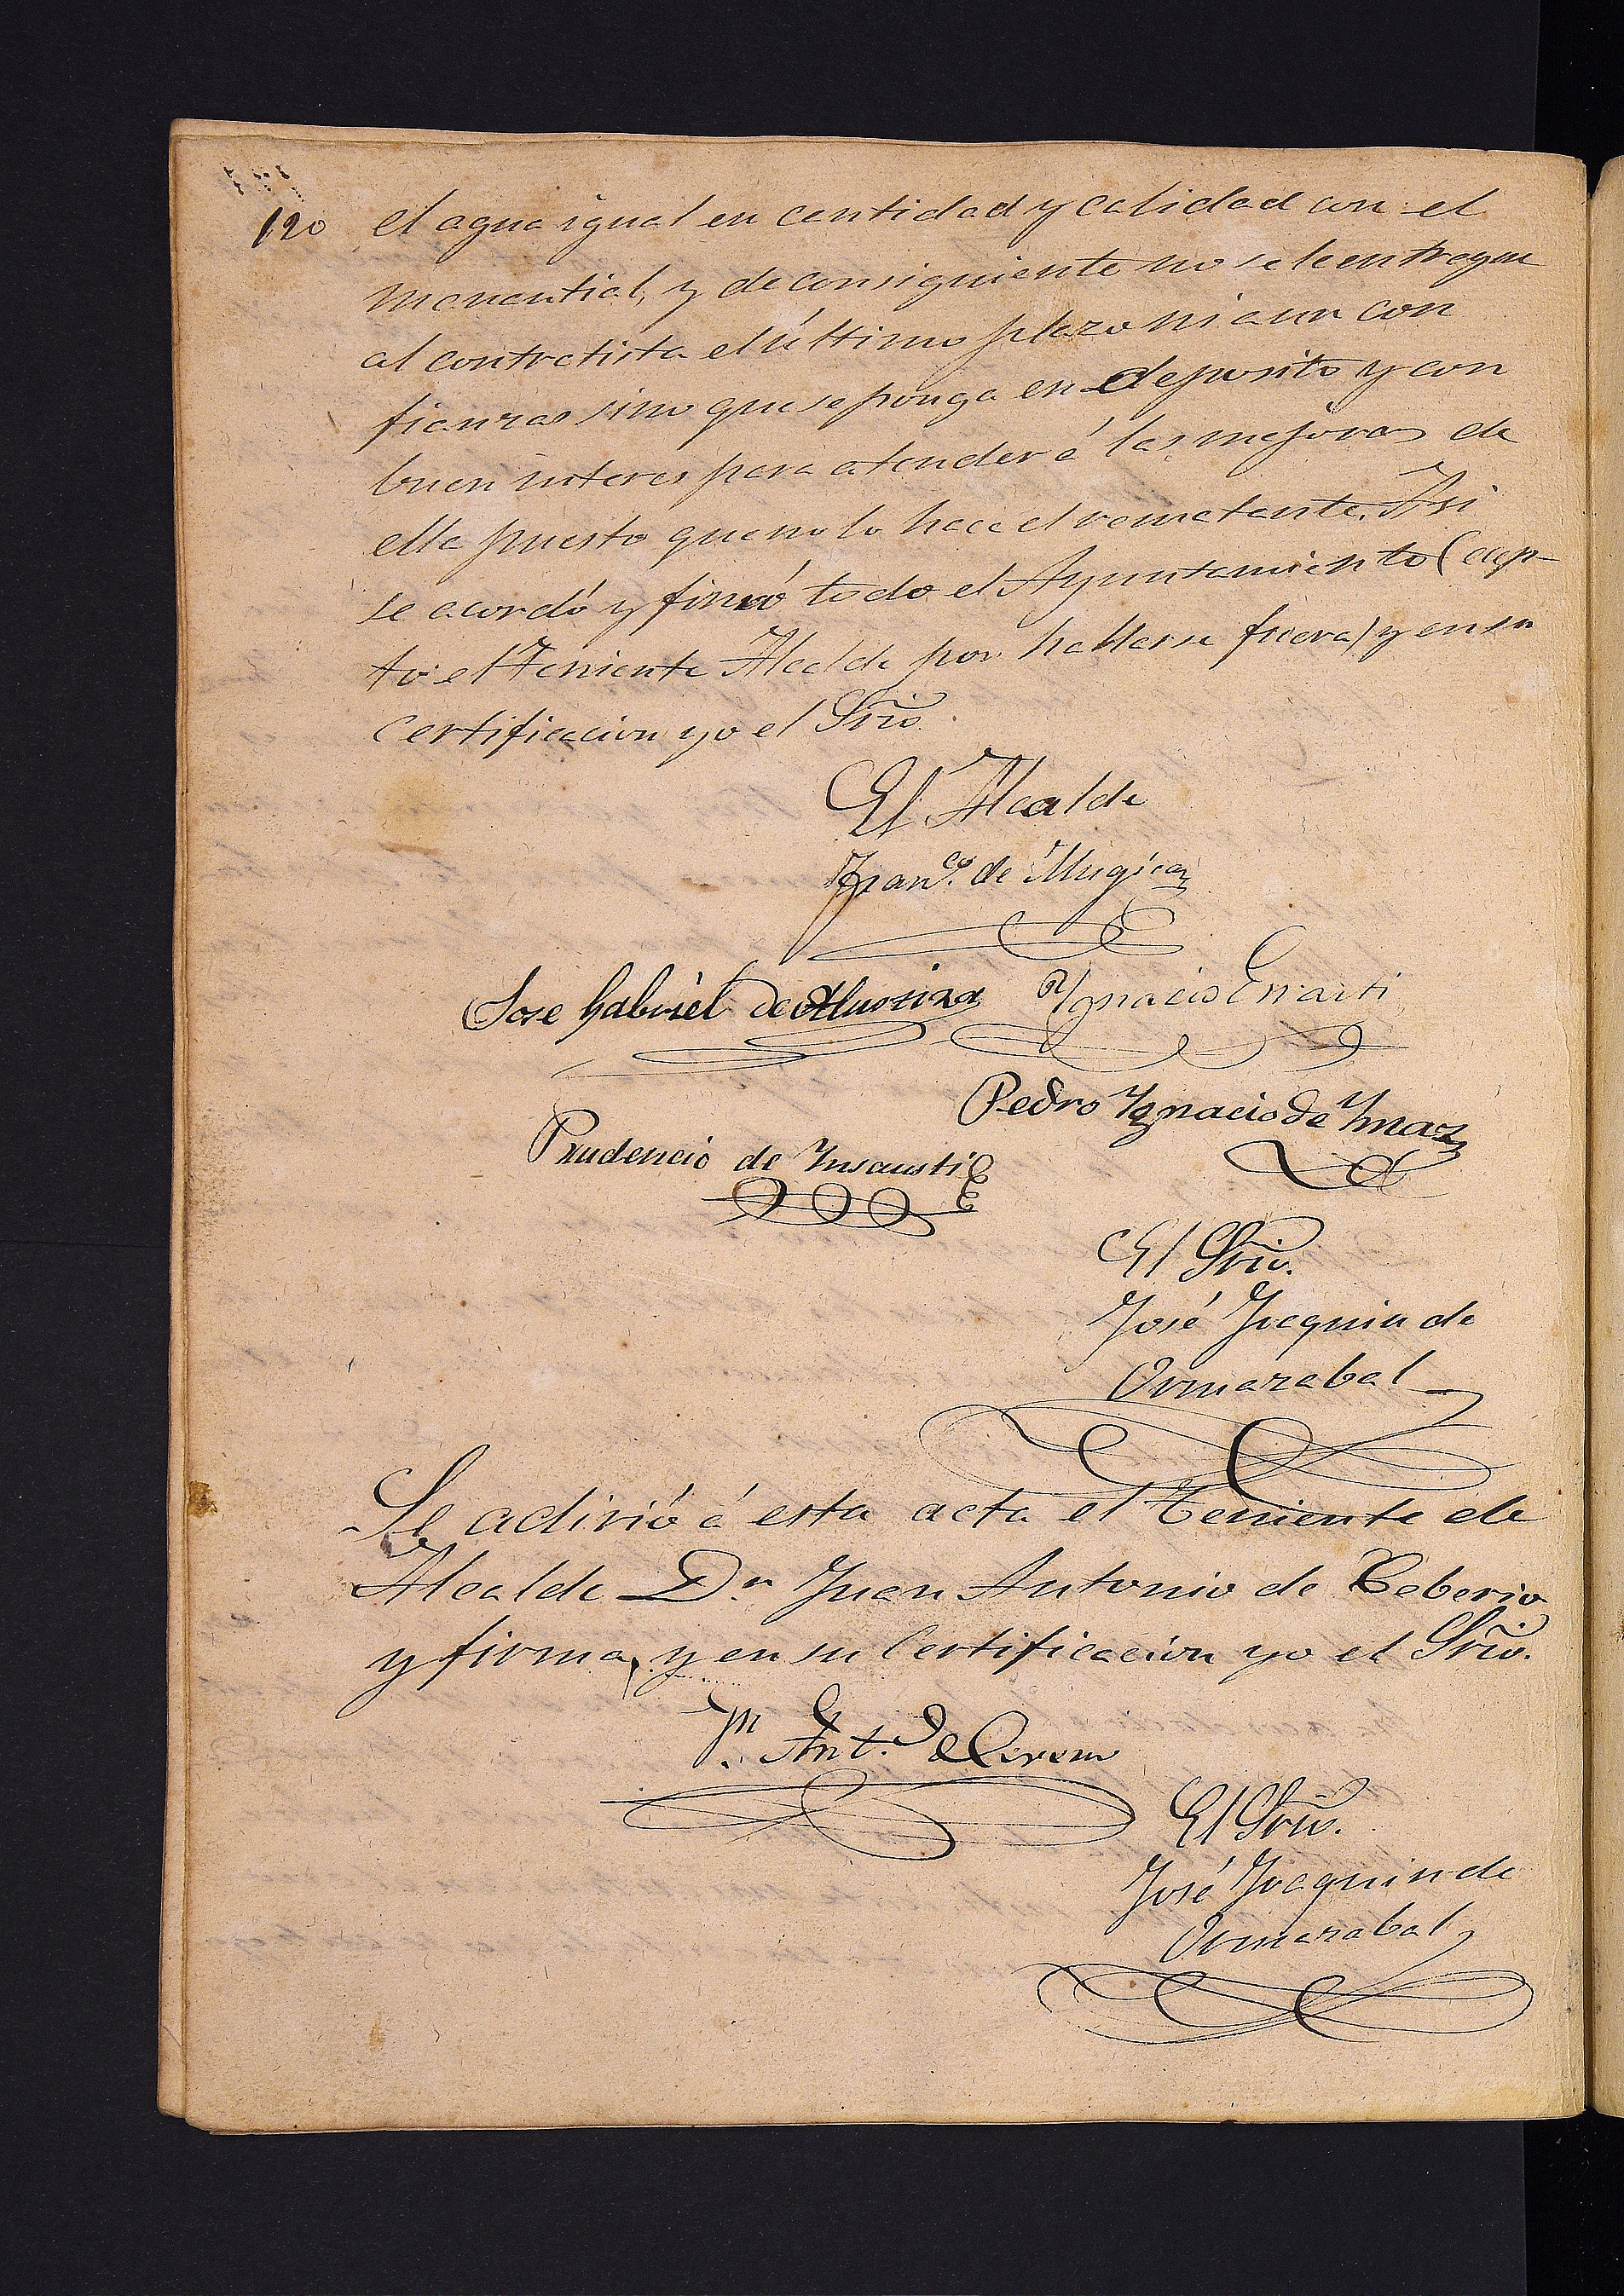 120
el agua igual en cantidad y calidad con el
manantial, y de consiguiente no se le entregue
al contratista el último plazo ni aun con
fianzas sino que se ponga en deposito y con
buen interes para atender á las mejoras de
ella puesto que no lo hace el rematante. Asi
se acordó y firmó todo el Ayuntamiento (cep-
to el Teniente Alcalde por hallarse fuera) y en su
certificacion yo el Srio.
El Alcalde
Franco. de Mugica
Jose Gabriel de Alustiza Ygnacio Errarti
Pedro Ygnacio de Ymaz
Prudencio de Ynsausti
El Srio.
José Joaquin de
Ormazabal
Se adirió á esta acta el Teniente de
Alcalde Dn. Juan Antonio de Ceberio
y firma, y en su certificacion yo el Srio.
Jn. Ant. de
El Srio.
José Joaquin de
Ormazabal